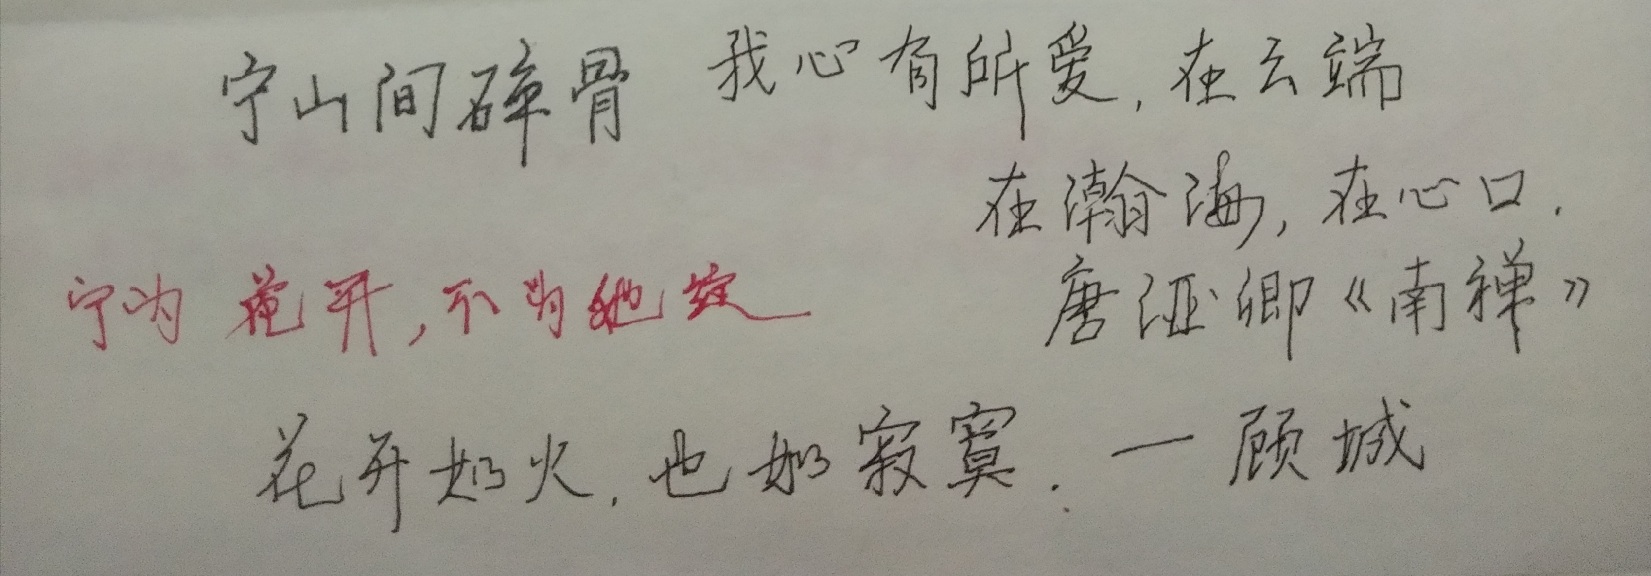 宁山间碎骨
我心有所爱,在云端
在瀚海,在心口.
宁为花开,不为她绽
唐沍卿《南禅》
花开如火,也如寂寞.一顾城